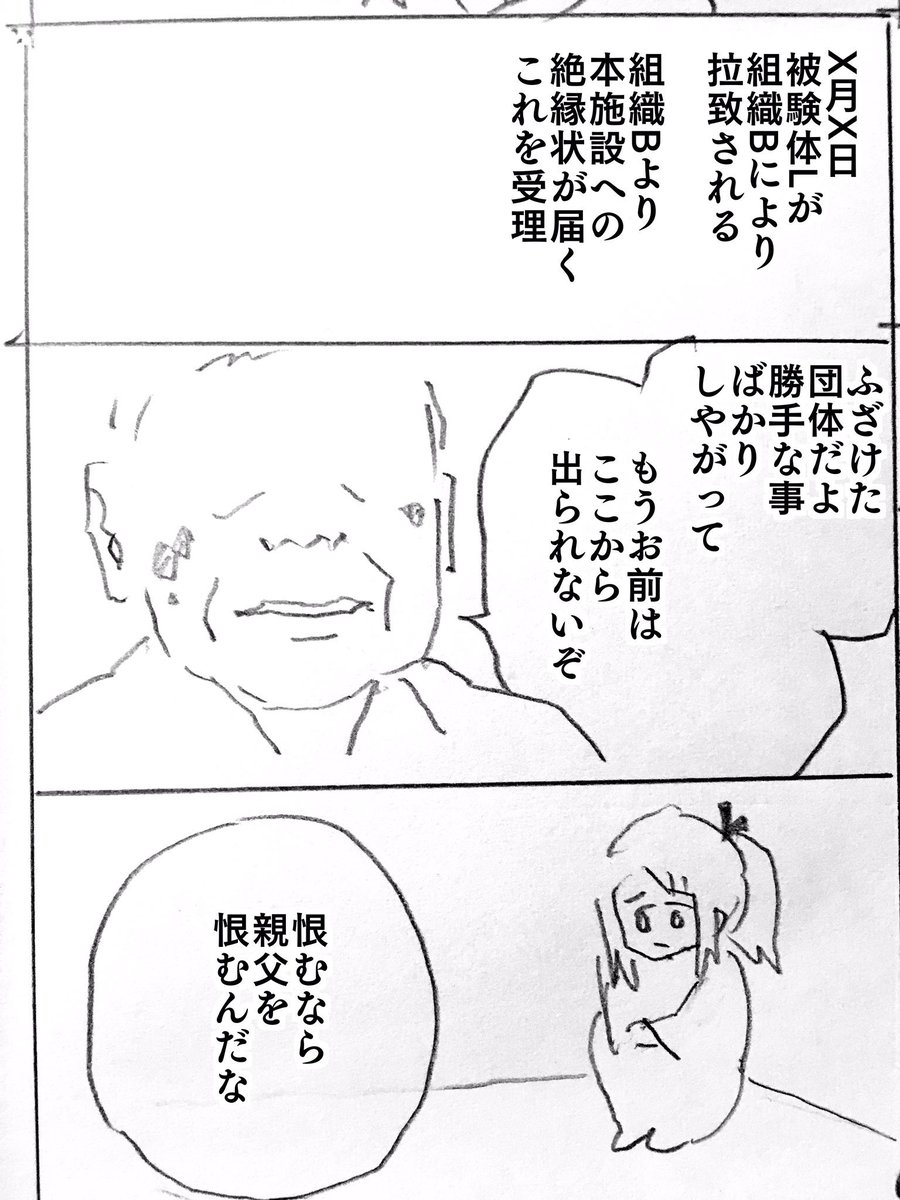 X月X日
被験体Lが
組織Bにより
拉致される
組織Bより
本施設への
絶縁状が届く
これを受理
ふざけた
団体だよ
勝手な事
ばかり
しやがって
もうお前は
ここから
出られないぞ
恨むなら
親父を
恨むんだな